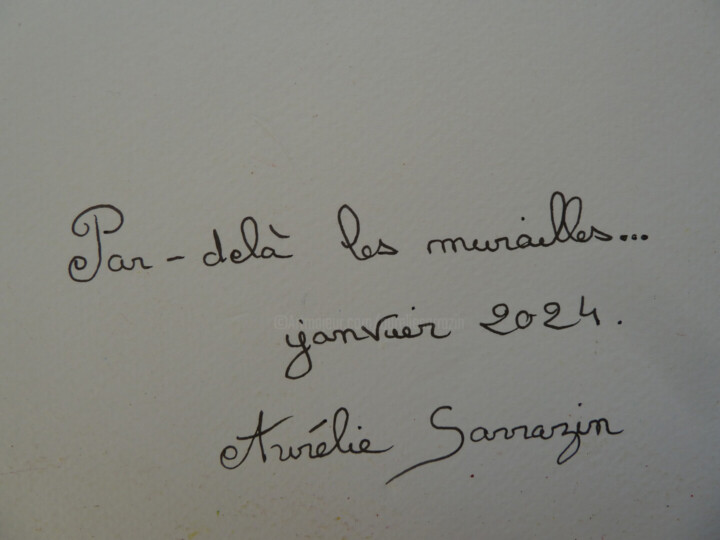 Par-delà les murailles...
janvier 2024.
Aurélie Sarrazin